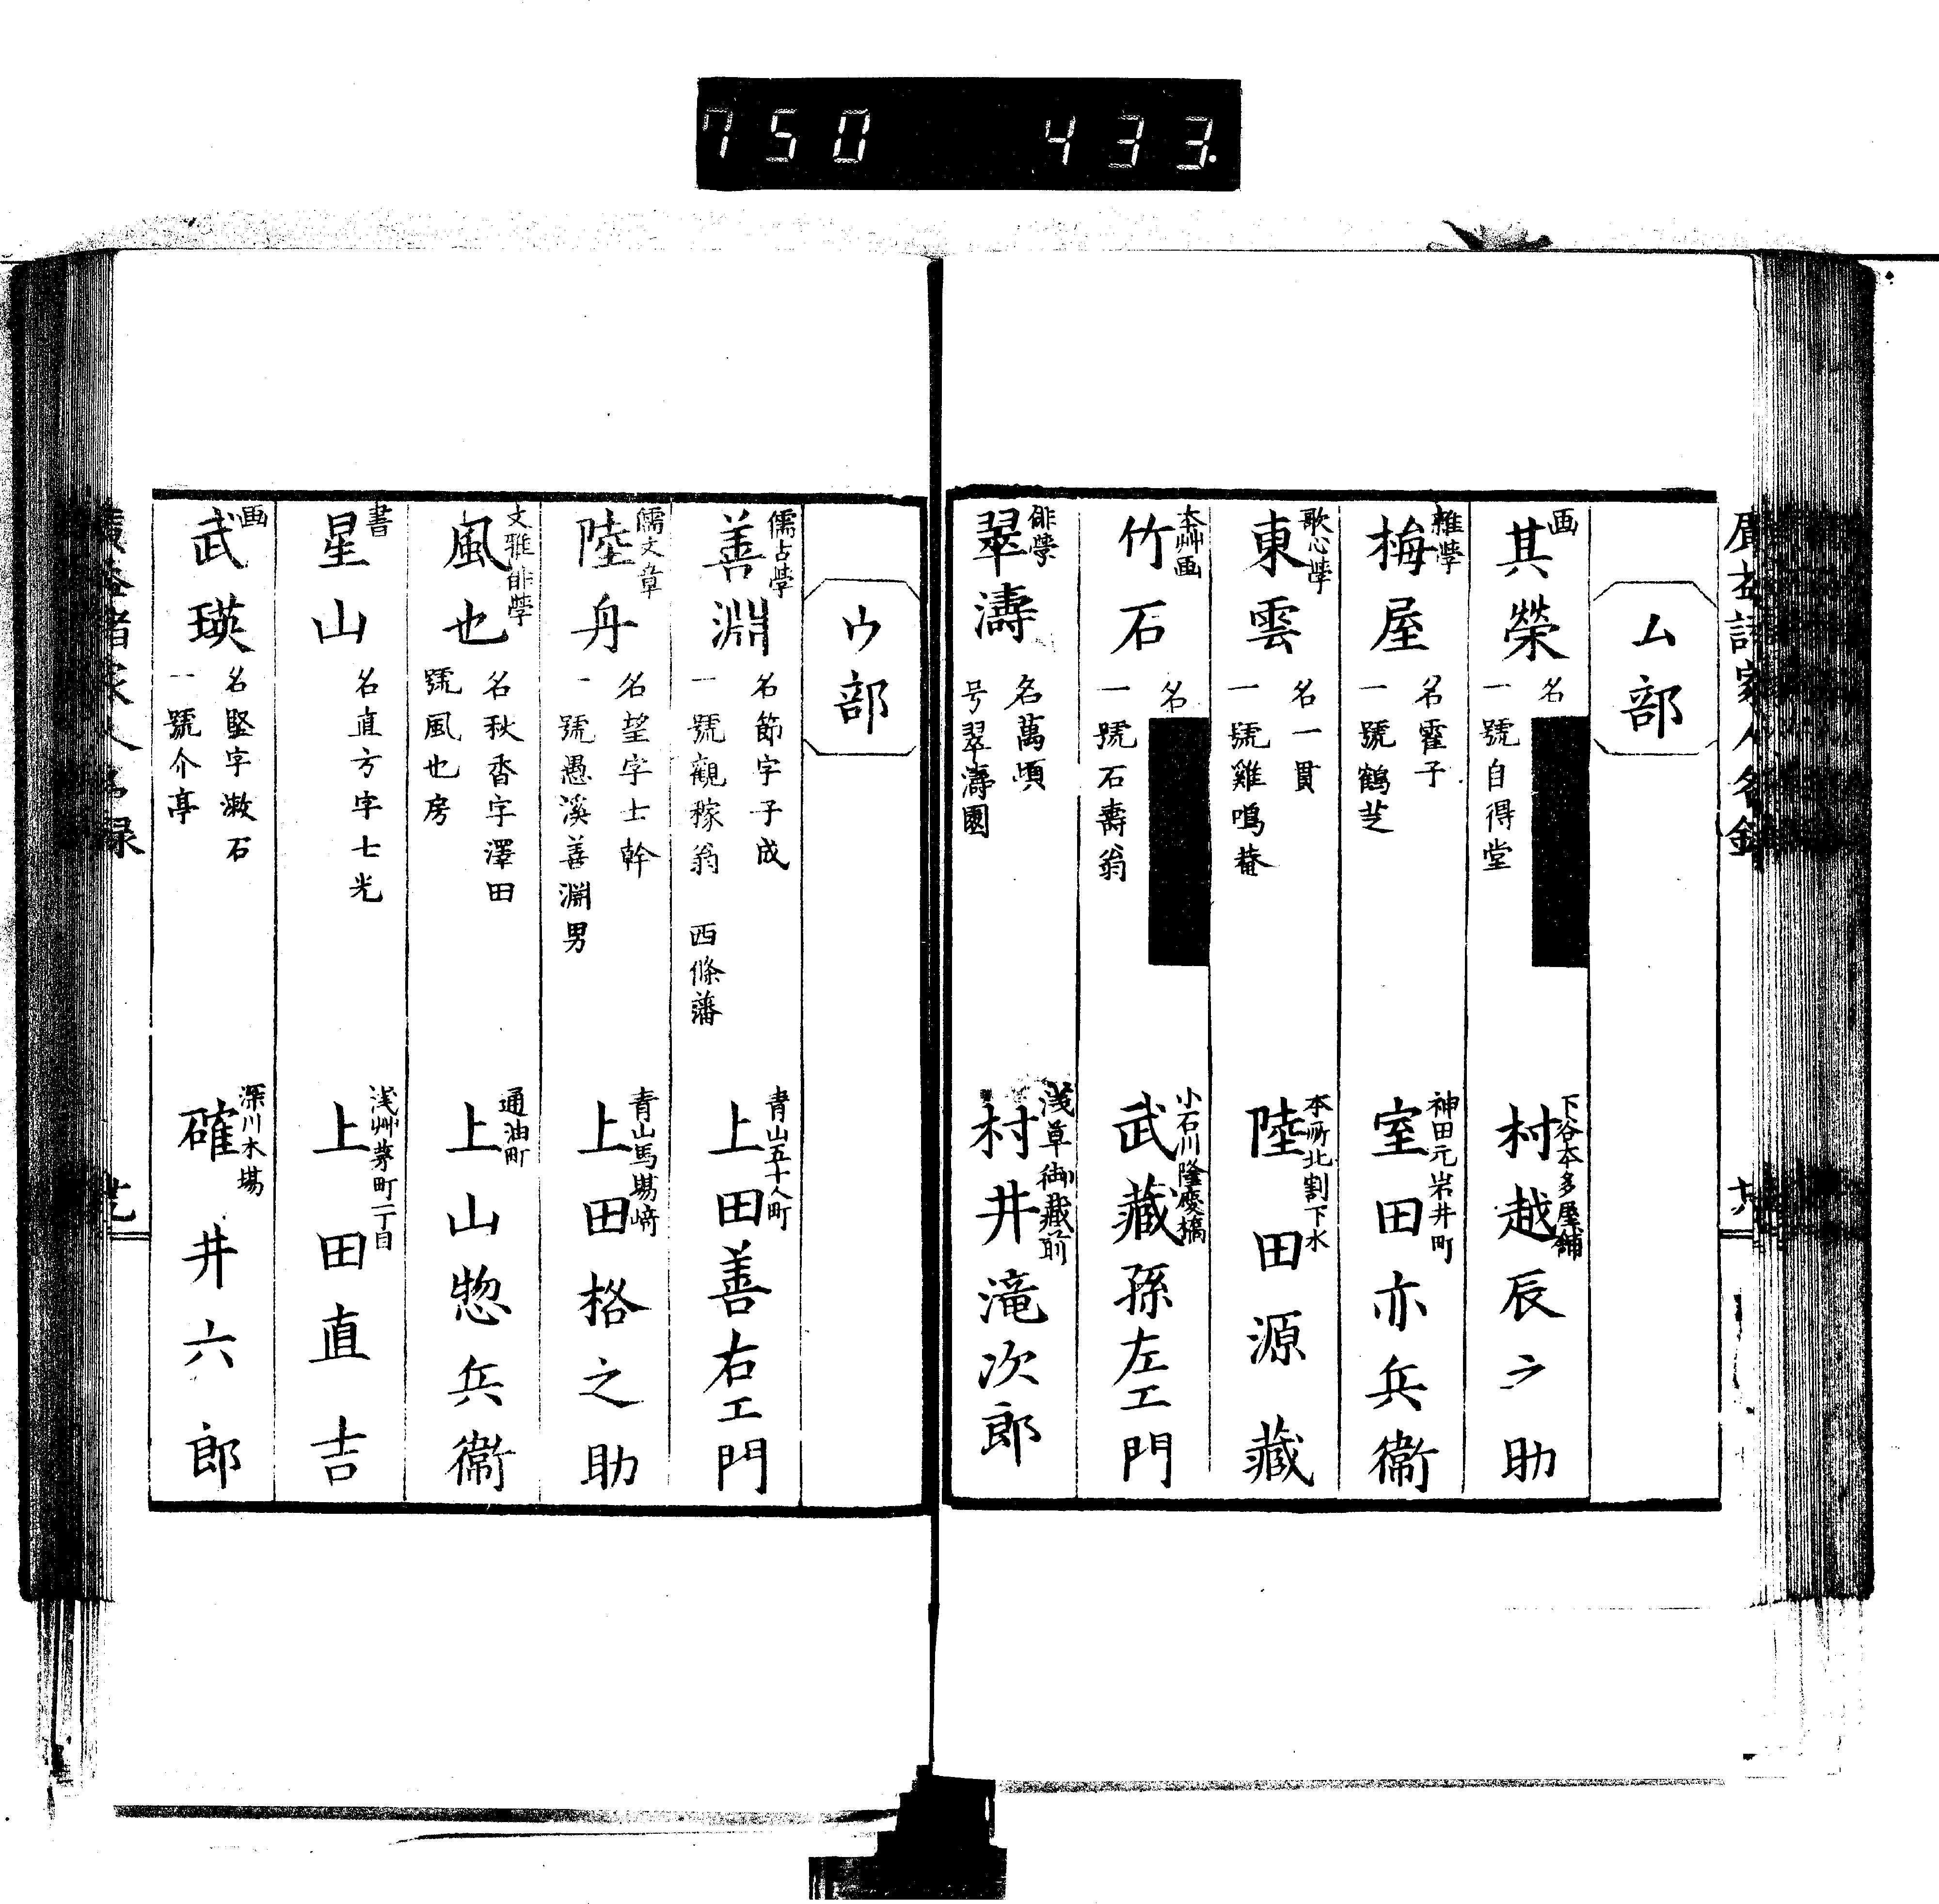 750 433.
ム部
画
其榮
名
一號自得堂
下谷本多屋舗
村越辰之助
雜學
梅屋
名霍子
一號鶴芝
神田元岩井町
室田亦兵衞
歌心學
東雲
名一貫
一號雞鳴菴
本所北割下水
陸田源藏
本艸画
竹石
名
一號石壽翁
小石川隆慶橋
武藏孫左エ門
俳學
翠濤
名萬頃
号翠濤園
浅草御藏前
村井滝次郎
ウ部
儒占學
善淵
名節字子成
一號觀稼翁 西條藩
青山五十人町
上田善右エ門
儒文章
陸舟
名望字士幹
一號愚溪善淵男
青山馬場﨑
上田格之助
文雅俳學
風也
名秋香字澤田
號風也房
通油町
上山惣兵衞
書
星山
名直方字七光
浅艸茅町一丁目
上田直吉
画
武瑛
名堅字漱石
一號介亭
深川木場
確井六郎